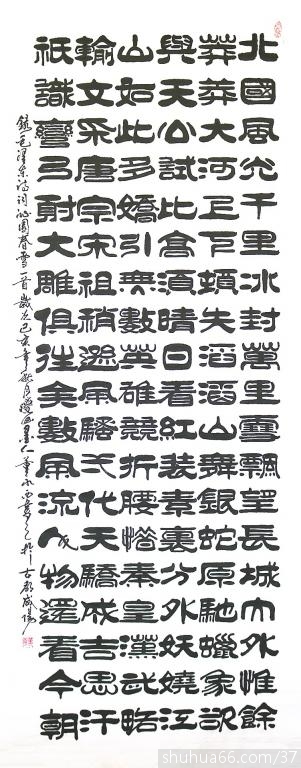 北國風光千里冰封萬里雪飄望長城內外惟餘
莽莽大河上下頓失滔滔山舞銀蛇原馳蠟象欲
與天公試比高須晴日看紅裝素裹分外妖嬈江
山如此多嬌引無數英雄競折腰惜秦皇漢武略
輸文采唐宗宋祖稍遜風騷弌代天驕成吉思汗
祇識彎弓射大雕俱往矣數風流人物還看今朝
錄毛澤東詩詞沁園春雪一首歲次己亥年秋月於古都咸陽
shuhua66.com/37